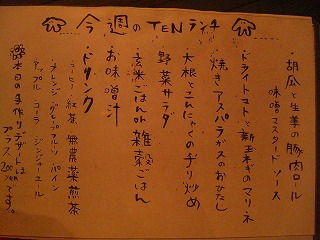 今週のTENランチ
・胡瓜と生姜の豚肉ロール
味噌マスタードソース
・ドライトマトと新玉ねぎのマリネ
・焼きアスパラガスのおひたし
・大根とこんにゃくのチリ炒め
・野菜サラダ
・玄米ごはんor雑穀ごはん
・お味噌汁
・ドリンク
コーヒー 紅茶 無農薬煎茶
オレンジ グレープフルーツ パイン
アップル コーラ ジンジャーエール
本日の手作りデザートは
プラス200yenです。